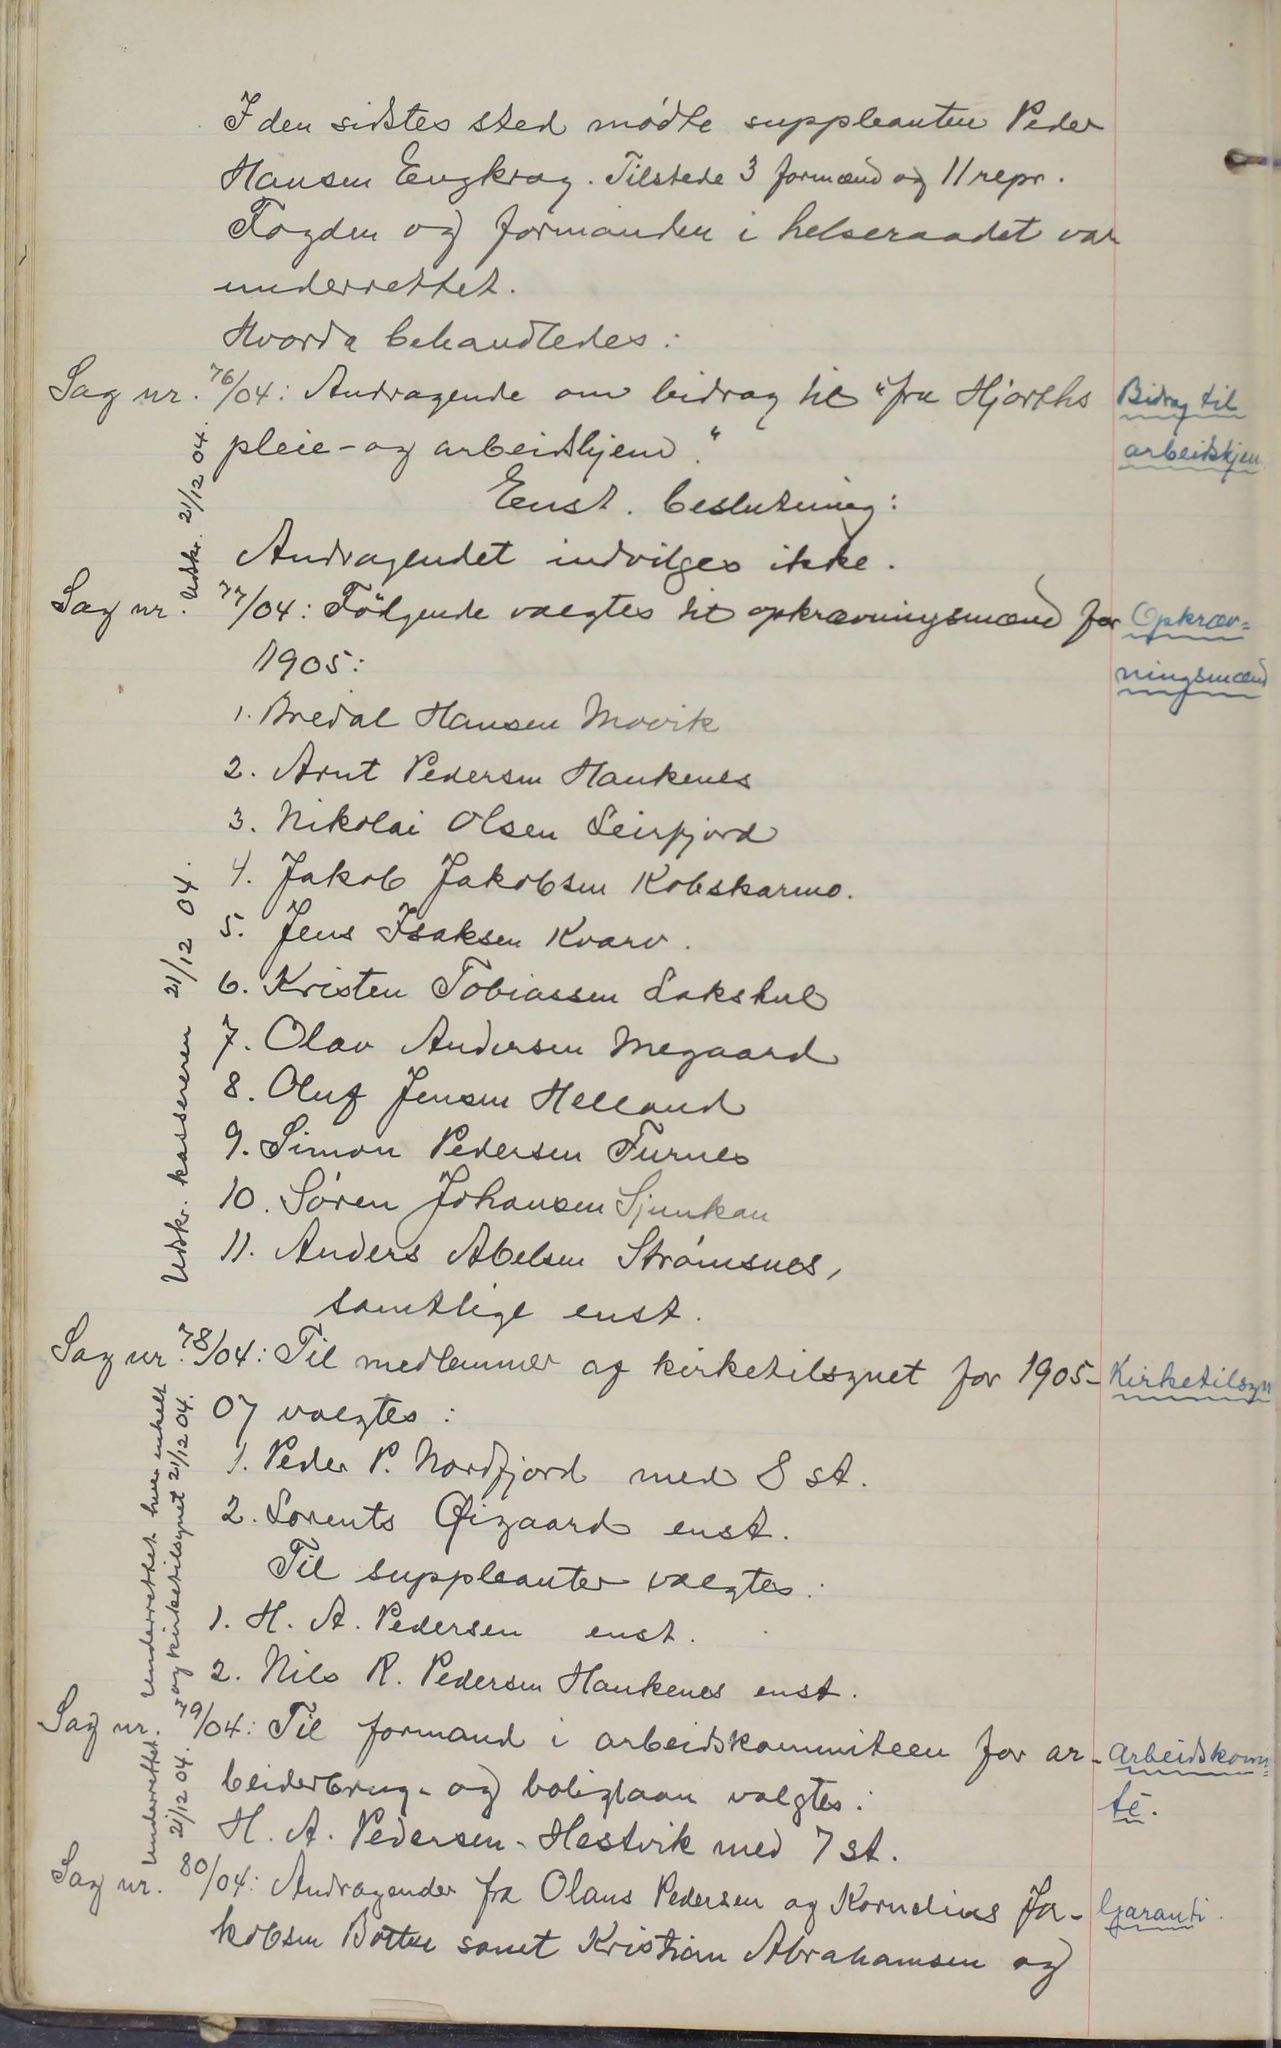 I den sidstes sted mødte suppleanten Peder
Hansen Engkrog. Tilstede 3 formænd og 11 repr.
Fogden og formanden i helseraadet var
underrettet.
Hvorda behandledes:
Sag nr. 76/04: Andragende om bidrag til "fru Hjorths
pleie- og arbeidshjem".
Enst. beslutning:
Andragendet indvilges ikke.
Sag nr. 77/04: Følgende valgtes til opkrævningsmænd for
1905:
1. Bredal Hansen Movik
2. Arnt Pedersen Haukenes
3. Nikolai Olsen Leirfjord
4. Jakob Jakobsen Kobskarmo.
5. Jens Isaksen Kvarv.
6. Kristen Tobiassen Lakshul
7. Olav Andersen Megaard
8. Oluf Jensen Helland
9. Simon Pedersen Furnes
10. Søren Johansen Sjunkan
11. Anders Abelsen Strømsnes,
samtlige enst.
Sag nr. 78/04: Til medlemmer af kirketilsynet for 1905-
07 valgtes:
1. Peder P. Nordfjord med 8 st.
2. Lorents Øigaard enst.
Til suppleanter valgtes:
1. H. A. Pedersen enst.
2. Nils R. Pedersen Haukenes enst.
Sag nr. 79/04: Til formand i arbeidskommiteen for ar-
beiderbrug- og boliglaan valgtes:
H. A. Pedersen-Hestvik med 7 st.
Sag nr. 80/04: Andragender fra Olaus Pedersen og Kornelius Ja-
kobsen Botten samt Kristian Abrahamsen og
Bidrag til
arbeidshjem
Opkræv-
ningsmænd
Kirketilsyn
Arbeidskomi-
té.
Garanti.
Udskr. 21/12 04.
Udskr. kassereren 21/12 04.
Underrettet hver enkelt
og kirketilsynet 21/12 04.
Underrettet
21/12 04.